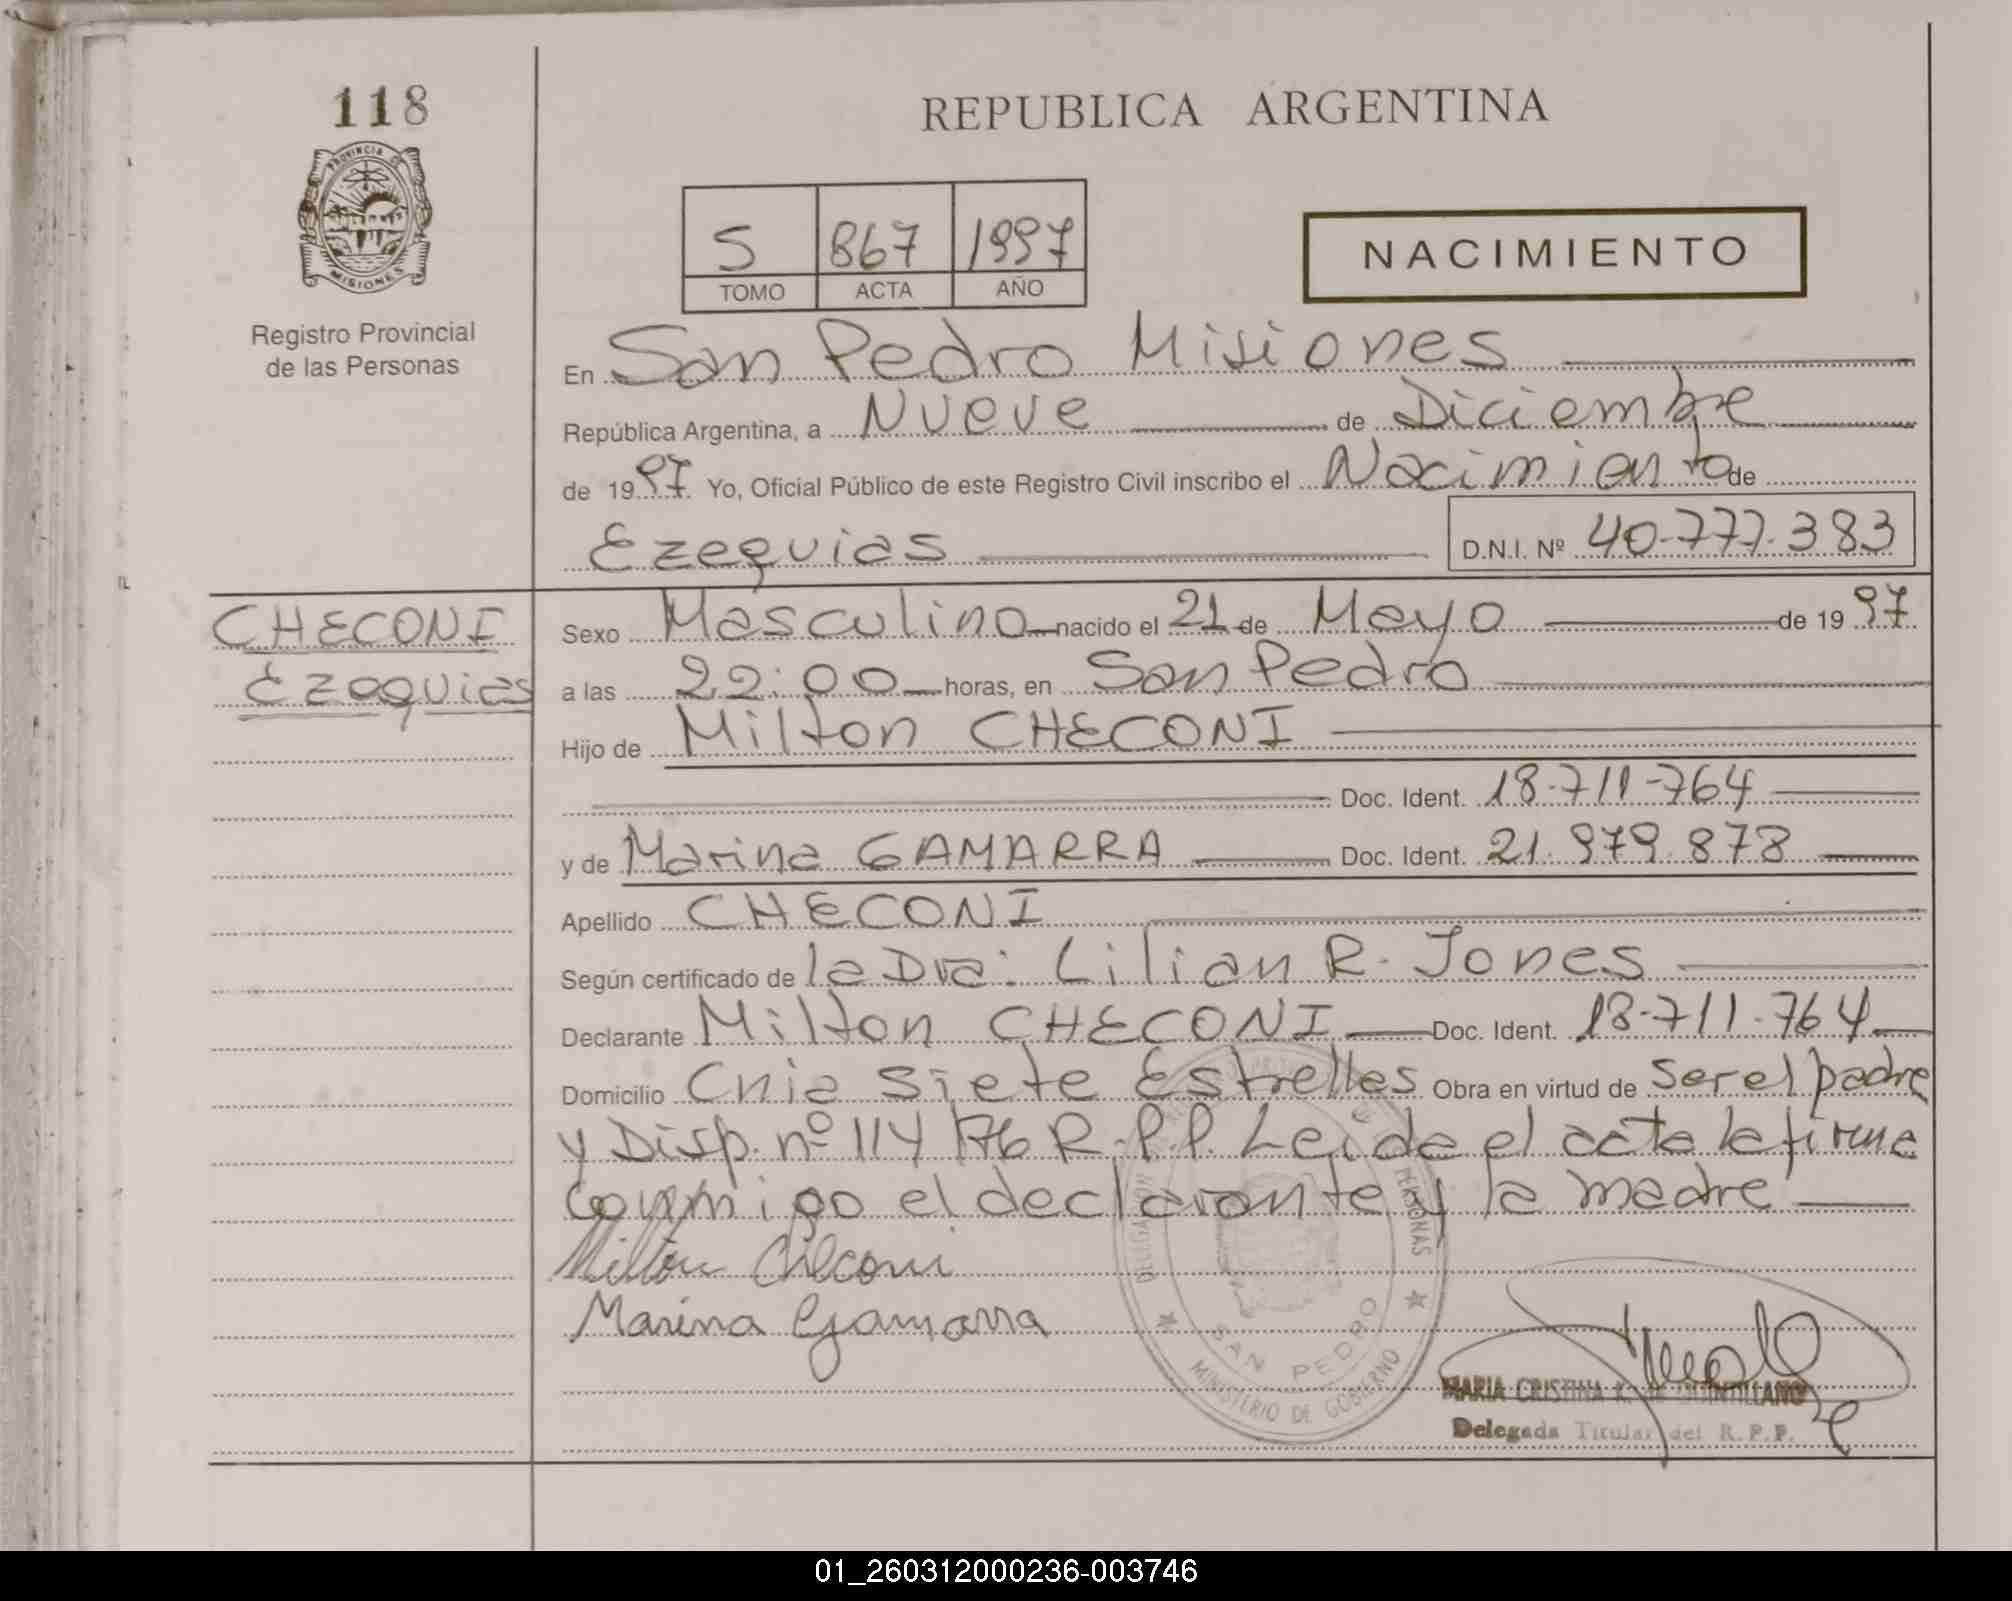 118
REPUBLICA ARGENTINA
PROVINCIA DE
MISIONES
Registro Provincial
de las Personas
5 867 1997
TOMO ACTA AÑO
NACIMIENTO
En San Pedro Misiones
República Argentina, a Nueve de Diciembre
de 1997 Yo, Oficial Público de este Registro Civil inscribo el Nacimiento de
Ezequias D.N.I. Nº 40.777.383
CHECONI
Ezequias
Sexo Masculino nacido el 21 de Mayo de 1997
a las 22:00 horas, en San Pedro
Hijo de Milton CHECONI
Doc. Ident. 18.711.764
y de Marina GAMARRA Doc. Ident. 21.979.878
Apellido CHECONI
Según certificado de la Dra: Lilian R. Jones
Declarante Milton CHECONI Doc. Ident. 18.711.764
Domicilio Cnia Siete Estrelles Obra en virtud de ser el padre
y Disp. nº 114/76 R.P.P. Leida el acta la firma
conmigo el declarante y la madre
Milton Checoni
Marina Gamarra
DELEGACION PERSONAS
SAN PEDRO
MINISTERIO DE GOBIERNO
MARIA CRISTINA K. DE QUINTILLANO
Delegada Titular del R.P.P.
01_260312000236-003746